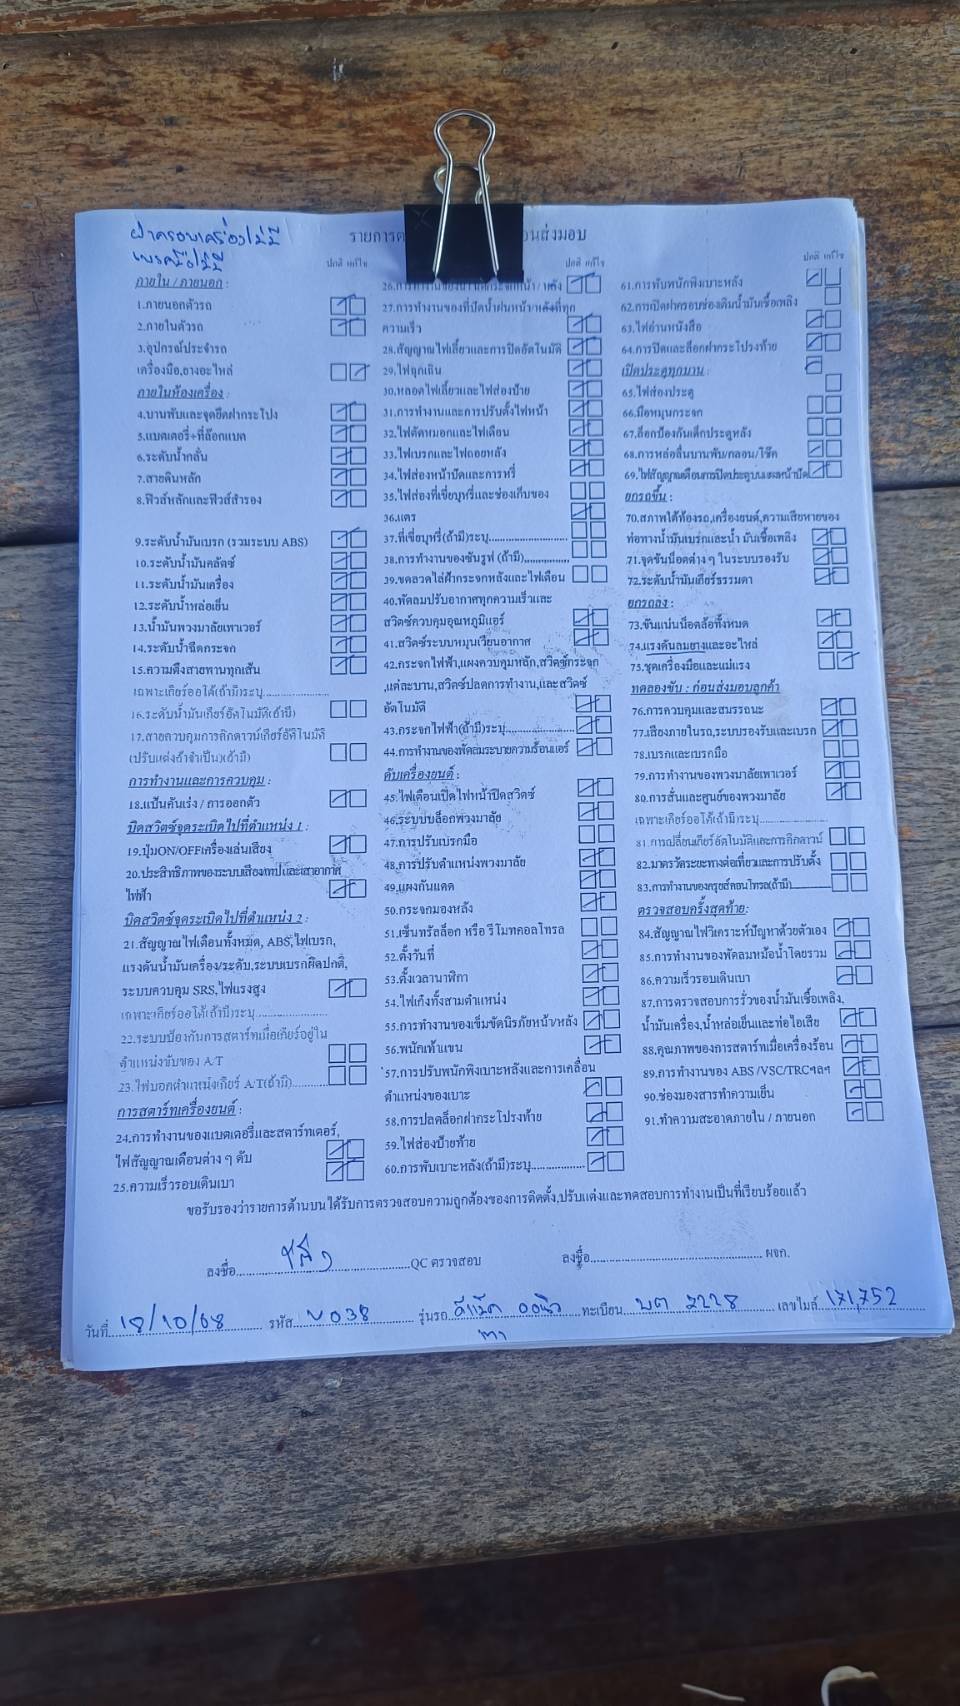 ฝาครอบเครื่องไม่มี
รายการต
อนส่งมอบ
ปกติ แก้ไข
ภายใน / ภายนอก :
1.ภายนอกตัวรถ
2.ภายในตัวรถ
3.อุปกรณ์ประจำรถ
เครื่องมือ,ยางอะไหล่
ภายในห้องเครื่อง :
4.บานพับและจุดยึดฝากระโปง
5.แบตเตอรี่+ที่ล๊อกแบต
6.ระดับน้ำกลั่น
7.สายดินหลัก
8.ฟิวส์หลักและฟิวส์สำรอง
9.ระดับน้ำมันเบรก (รวมระบบ ABS)
10.ระดับน้ำมันคลัตช์
11.ระดับน้ำมันเครื่อง
12.ระดับน้ำหล่อเย็น
13.น้ำมันพวงมาลัยเพาเวอร์
14.ระดับน้ำฉีดกระจก
15.ความตึงสายพานทุกเส้น
เฉพาะเกียร์ออโต้(ถ้ามี)ระบุ....................
16.ระดับน้ำมันเกียร์อัตโนมัติ(ถ้ามี)
17.สายควบคุมการคิกดาวน์เกียร์อัติโนมัติ
(ปรับแต่งถ้าจำเป็น)(ถ้ามี)
การทำงานและการควบคุม :
18.แป้นคันเร่ง / การออกตัว
บิดสวิตช์จุดระเบิดไปที่ตำแหน่ง 1 :
19.ปุ่มON/OFFเครื่องเล่นเสียง
20.ประสิทธิภาพของระบบเสียง/เทปและเสาอากาศ
ไฟฟ้า
บิดสวิตช์จุดระเบิดไปที่ตำแหน่ง 2 :
21.สัญญาณไฟเตือนทั้งหมด, ABS,ไฟเบรก,
แรงดันน้ำมันเครื่อง/ระดับ,ระบบเบรกผิดปกติ,
ระบบควบคุม SRS,ไฟแรงสูง
เฉพาะเกียร์ออโต้(ถ้ามี)ระบุ....................
22.ระบบป้องกันการสตาร์ทเมื่อเกียร์อยู่ใน
ตำแหน่งขับของ A/T
23.ไฟบอกตำแหน่งเกียร์ A/T(ถ้ามี)..........
การสตาร์ทเครื่องยนต์ :
24.การทำงานของแบตเตอรี่และสตาร์ทเตอร์,
ไฟสัญญาณเตือนต่าง ๆ ดับ
25.ความเร็วรอบเดินเบา
ปกติ แก้ไข
27.การทำงานของที่ปัดน้ำฝนหน้า/หลังที่ทุก
ความเร็ว
28.สัญญาณไฟเลี้ยวและการปิดอัตโนมัติ
29.ไฟฉุกเฉิน
30.หลอดไฟเลี้ยวและไฟส่องป้าย
31.การทำงานและการปรับตั้งไฟหน้า
32.ไฟตัดหมอกและไฟเตือน
33.ไฟเบรกและไฟถอยหลัง
34.ไฟส่องหน้าปัดและการหรี่
35.ไฟส่องที่เขี่ยบุหรี่และช่องเก็บของ
36.แตร
37.ที่เขี่ยบุหรี่(ถ้ามี)ระบุ..............................
38.การทำงานของซันรูฟ (ถ้ามี)................
39.ขดลวดไล่ฝ้ากระจกหลังและไฟเตือน
40.พัดลมปรับอากาศทุกความเร็วและ
สวิตช์ควบคุมอุณหภูมิแอร์
41.สวิตซ์ระบบหมุนเวียนอากาศ
42.กระจกไฟฟ้า,แผงควบคุมหลัก,สวิตซ์กระจก
,แต่ละบาน,สวิตซ์ปลดการทำงาน,และสวิตซ์
อัตโนมัติ
43.กระจกไฟฟ้า(ถ้ามี)ระบุ..........................
44.การทำงานของพัดลมระบายความร้อนแอร์
ดับเครื่องยนต์ :
45.ไฟเตือนเปิดไฟหน้าปิดสวิตซ์
46.ระบบบล็อกพวงมาลัย
47.การปรับเบรกมือ
48.การปรับตำแหน่งพวงมาลัย
49.แผงกันแดด
50.กระจกมองหลัง
51.เซ็นทรัลล็อก หรือ รีโมทคอลโทรล
52.ตั้งวันที่
53.ตั้งเวลานาฬิกา
54.ไฟเก๋งทั้งสามตำแหน่ง
55.การทำงานของเข็มขัดนิรภัยหน้า/หลัง
56.พนักเท้าแขน
57.การปรับพนักพิงเบาะหลังและการเคลื่อน
ตำแหน่งของเบาะ
58.การปลดล็อกฝากระโปรงท้าย
59.ไฟส่องป้ายท้าย
60.การพับเบาะหลัง(ถ้ามี)ระบุ....................
ปกติ แก้ไข
61.การพับพนักพิงเบาะหลัง
62.การเปิดฝาครอบช่องเติมน้ำมันเชื้อเพลิง
63.ไฟอ่านหนังสือ
64.การปิดและล็อกฝากระโปรงท้าย
เปิดประตูทุกบาน :
65.ไฟส่องประตู
66.มือหมุนกระจก
67.ล็อกป้องกันเด็กประตูหลัง
68.การหล่อลื่นบานพับ/กลอน/โช๊ค
69.ไฟสัญญาณเตือนการปิดประตูบนแผงหน้าปัด
ยกรถขึ้น :
70.สภาพใต้ท้องรถ,เครื่องยนต์,ความเสียหายของ
ท่อทางน้ำมันเบรกและน้ำ มันเชื้อเพลิง
71.จุดขันน็อตต่าง ๆ ในระบบรองรับ
72.ระดับน้ำมันเกียร์ธรรมดา
ยกรถลง :
73.ขันแน่นน็อตล้อทั้งหมด
74.แรงดันลมยางและอะไหล่
75.ชุดเครื่องมือและแม่แรง
ทดลองขับ : ก่อนส่งมอบลูกค้า
76.การควบคุมและสมรรถนะ
77.เสียงภายในรถ,ระบบรองรับและเบรก
78.เบรกและเบรกมือ
79.การทำงานของพวงมาลัยเพาเวอร์
80.การสั่นและศูนย์ของพวงมาลัย
เฉพาะเกียร์ออโต้(ถ้ามี)ระบุ....................
81.การเปลี่ยนเกียร์อัตโนมัติและการคิกดาวน์
82.มาตรวัดระยะทางต่อเที่ยวและการปรับตั้ง
83.การทำงานของครุยส์คอนโทรล(ถ้ามี)..........
ตรวจสอบครั้งสุดท้าย:
84.สัญญาณไฟวิเคราะห์ปัญหาด้วยตัวเอง
85.การทำงานของพัดลมหม้อน้ำโดยรวม
86.ความเร็วรอบเดินเบา
87.การตรวจสอบการรั่วของน้ำมันเชื้อเพลิง,
น้ำมันเครื่อง,น้ำหล่อเย็นและท่อไอเสีย
88.คุณภาพของการสตาร์ทเมื่อเครื่องร้อน
89.การทำงานของ ABS /VSC/TRCฯลฯ
90.ช่องมองสารทำความเย็น
91.ทำความสะอาดภายใน / ภายนอก
ขอรับรองว่ารายการด้านบนได้รับการตรวจสอบความถูกต้องของการติดตั้ง,ปรับแต่งและทดสอบการทำงานเป็นที่เรียบร้อยแล้ว
ลงชื่อ..................................................QC ตรวจสอบ ลงชื่อ.................................................. ผจก.
วันที่ 18/10/68 รหัส V038 รุ่นรถ ดีแม็ค ออนิว ทะเบียน บต 7228 เลขไมล์ 171,752